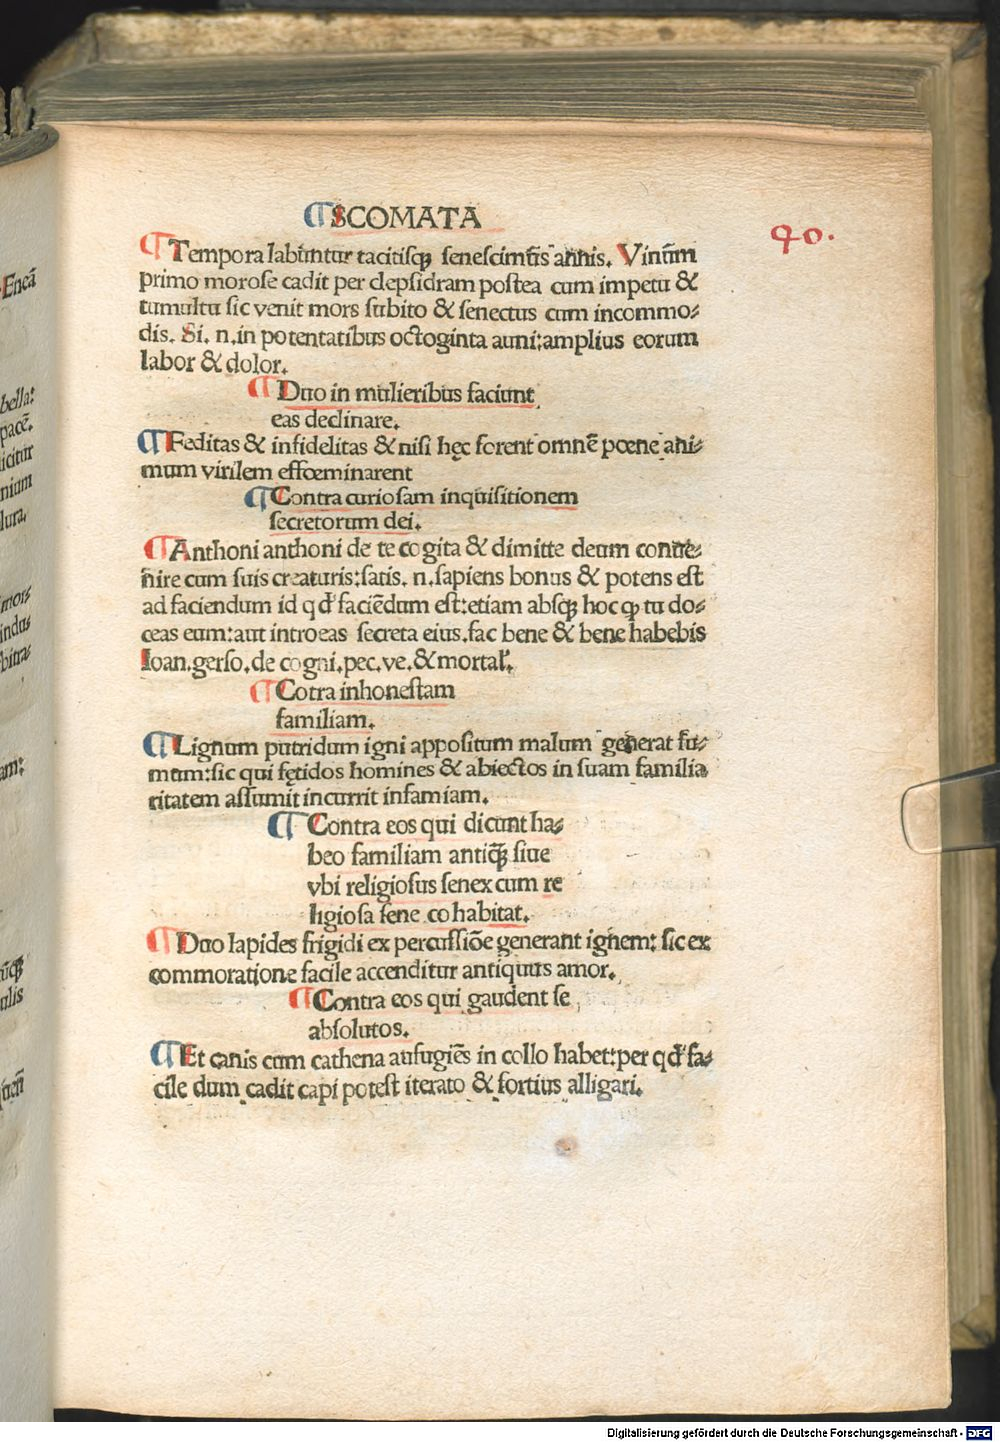 ¶ SCOMATA
40.
¶ Tempora labuntur tacitisq̃ꝫ senescimus annis. Vinum
primo morose cadit per clepsidram postea cum impetu &
tumultu sic venit mors subito & senectus cum incommo⸗
dis. Si. n. in potentatibus octoginta auni: amplius eorum
labor & dolor.
¶ Duo in mulieribus faciunt
eas declinare.
¶ Feditas & infidelitas & nisi hęc forent omnẽ pœne ani⸗
mum virilem effœminarent
¶ Contra curiosam inquisitionem
secretorum dei.
¶ Anthoni anthoni de te cogita & dimitte deum conue⸗
nire cum suis creaturis: satis. n. sapiens bonus & potens est
ad faciendum id qđ faciẽdum est: etiam absqꝫ hoc ꝙ tu do⸗
ceas eum: aut introeas secreta eius. fac bene & bene habebis
Ioan. gerso. de cogni. pec. ve. & mortal'.
¶ Cotra inhonestam
familiam.
¶ Lignum putridum igni appositum malum generat fu⸗
mum: sic qui fętidos homines & abiectos in suam familia
ritatem assumit incurrit infamiam.
¶ Contra eos qui dicunt ha⸗
beo familiam antiq̃ꝫ siue
vbi religiosus senex cum re
ligiosa sene cohabitat.
¶ Duo lapides frigidi ex percussiõe generant ignem: sic ex
commoratione facile accenditur antiquus amor.
¶ Contra eos qui gaudent se
absolutos.
¶ Et canis cum cathena aufugiẽs in collo habet: per qđ fa⸗
cile dum cadit capi potest iterato & fortius alligari.
Encã
bella:
pacẽ.
licitur
nium
lura.
mors
indus
bitra⸗
am:
ulis
Digitalisierung gefördert durch die Deutsche Forschungsgemeinschaft - DFG